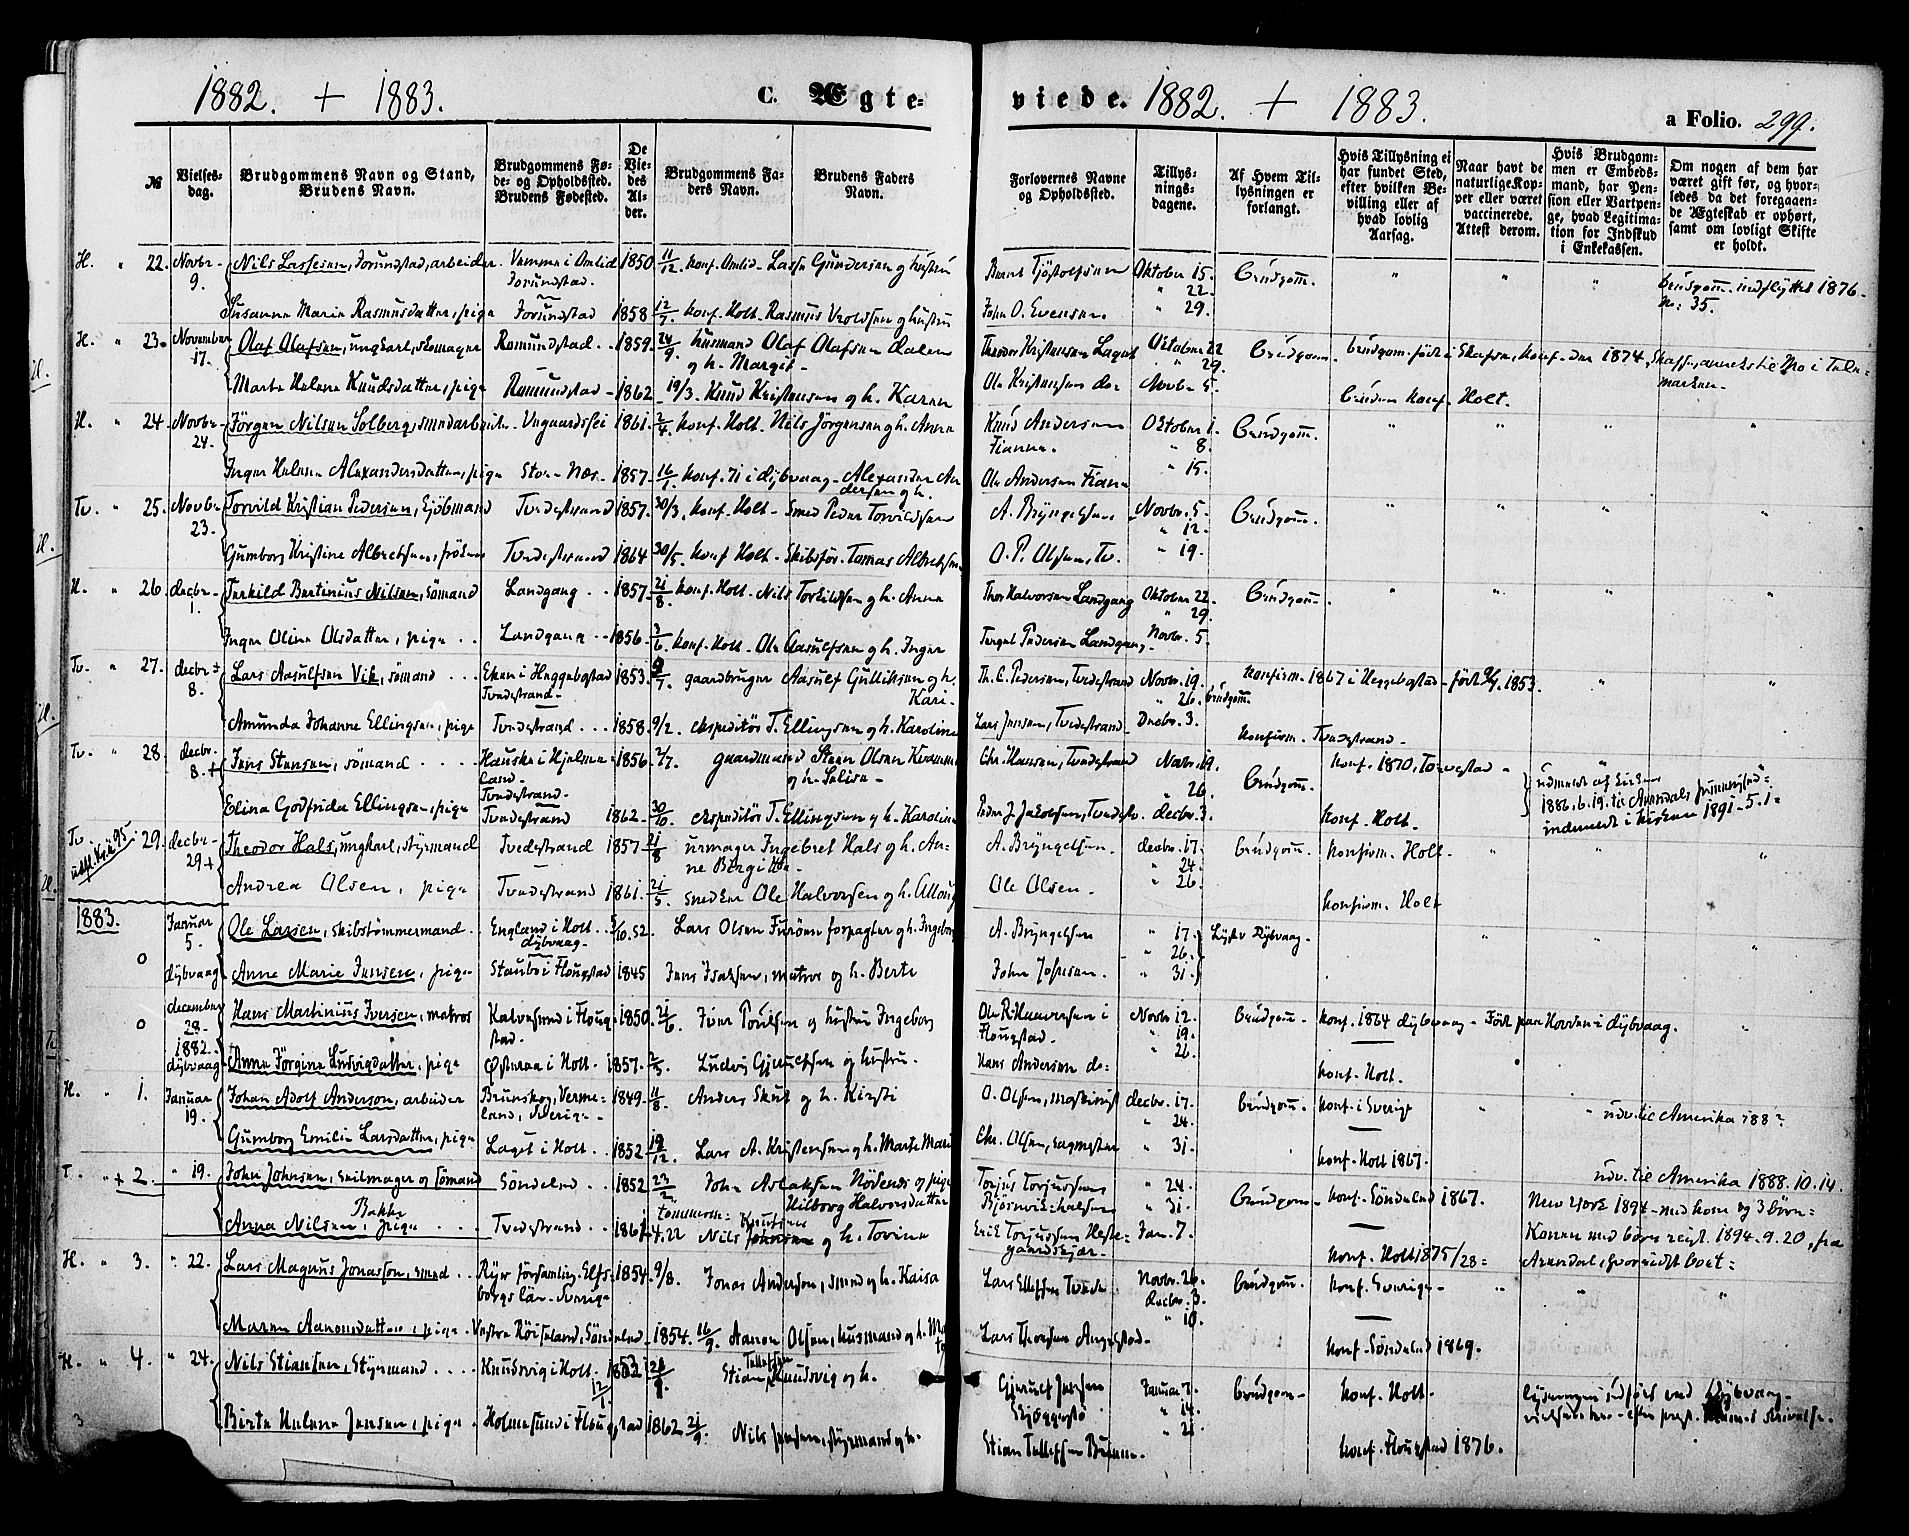 1882. + 1883. C. Ægte-
viede. 1882. + 1883. a Folio. 299.
№
Vielses-
dag.
Brudgommens Navn og Stand,
Brudens Navn.
Brudgommens Fø-
de- og Opholdssted.
Brudens Fødested.
De
Vie-
des
Al-
der.
Brudgommens Fa-
ders Navn.
Brudens Faders
Navn.
Forlovernes Navne
og Opholdssted.
Tillys-
nings-
dagene.
Af Hvem Til-
lysningen er
forlangt.
Hvis Tillysning ei
har fundet Sted,
efter hvilken Be-
villing eller af
hvad lovlig
Aarsag.
Naar havt de
naturlige Kop-
per eller været
vaccinerede.
Attest derom.
Hvis Brudgom-
men er Embeds-
mand, har Pen-
sion eller Vartpen-
ge, hvad Legitima-
tion for Indskud
i Enkekassen.
Om nogen af dem har
været gift før, og hvor-
ledes da det foregaaen-
de Ægteskab er ophørt,
samt om lovligt Skifte
er holdt.
H. " 22. Novbr. 9. Nils Lassesen, Forundstad, arbeider Vemme i Omlid Forundstad. 1850 11/12 konf. Omlid - Lasse Gundersen og hustru Bernt Tjöstolfsen Oktober 15. 22. Brudgom. " " " Brudgom. indflyttet 1876 - No: 35.
Susanne Marie Rasmusdatter, pige Forundstad 1858 12/7 konf. Holt - Rasmus Uroldsen og hustru John O. Evensen. " 29.
H. " 23. November 17. Olaf Olafsen, ungkarl, skomager Romundstad . . 1859. 24/9. husmand Olaf Olafsen Dalen og h. Margit - Theodor Kristensen Laget Oktober 22 " 29. Brudgom. Brudgom. født i Skafse, konf. der 1874, Skafse, anneks til Mo i Tele-
marken -
Marte Helene Knudsdatter, pige Romundstad - 1862 - 19/3. Knud Kristensen og h. Karen Ole Kristensen do - Novbr. 5. Bruden konf. Holt.
H. " 24. Novbr. 24. Jörgen Nilsen Solberg, smedarbeid. Ungaardsfei 1861. 2/4. konf. Holt. Nils Jörgensen g h. Anne Knud Andersen Fianne. Oktober 1. " 8 Brudgom. " " " "
Inger Helene Alexandersdatter, pige Store Næs. 1857. 16/7. konf. 71 i dybvaag - Alexander An-
dersen g h. Ole Andersen Fiane " 15.
Tv. " 25. Novbr. 23. Torvild Kristian Pedersen, Sjöbmand Tvedestrand 1857. 30/3. konf. Holt - Smed Peder Torvildsen A. Bryngelsen Novbr. 5. " 12. Brudgom. " " " "
Gumborg Kristine Albretsen, frøken Tvedestrand 1864 30/5. konf Holt - Skibsför. Tomas Albretsen O. P. Olsen, Tv. " 19.
H. " 26 decbr. 1. Terkild Bertinius Nilsen, sømand Landgang . . 1857. 21/8. konf. Holt - Nils Torkildsen g h. Anne Thor Halvorsen Landgang Oktober 22. " 29. Brudgom. " " " "
Inger Oline Olsdatter, pige . . Landgang . . 1856. 3/6. konf. Holt - Ole Aasulfsen og h. Inger Terget Pedersen Landgang - Novbr. 5.
Tv. " 27. decbr. 8. Lars Aasulfsen Vik, sømand . . . Eken i Heggebostad Tvedestrand - 1853. 9/7. gaardbruger Aasulf Gulliksen og h. Kari - Th. C. Pedersen, Tvedestrand Novbr. 19. " 26. Brudgom. Konfirm. 1867 i Heggebostad - født 9/7. 1853. " "
Amunda Johanne Ellingsen, pige Tvedestrand . . . 1858. 9/2. ekspeditör T. Ellingsen og h. Karoline Lars Jensen, Tvedestrand - Decbr. 3. Konfirm. Tvedestrand -
Tv. " 28. decbr. 8. + Jens Stensen, sømand . . . . Hauske i Hjelme- land - Tvedestrand - 1856 - 2/7. gaardmand Steen Olsen og h. Selise - Chr. Hansen, Tvedestrand Novbr. 19. " 26. Brudgom. konf. 1870, Torvestad " udmeldt af kirken
1886. 6. 19. til Arendals frimenighed =
indmeldt i kirken 1891 - 5. 1 =
Elina Godfrida Ellingsen, pige Tvedestrand 1862. 30/10. ekspeditör T. Ellingsen og h. Karoline Peder J. Jakobsen, Tvedestr. decbr. 3. konf. Holt.
Tv. " 29. decbr. 29 + Theodor Hals, ungkarl, styrmand Tvedestrand 1857. 21/8 urmager Ingebret Hals og h. An-
ne Birgitte - A. Bryngelsen. decbr. 17. " 24. Brudgom. Konfirm. Holt - " " "
Andrea Olsen, pige Tvedestrand 1861. 21/5. smeden Ole Halvorsen og h. Alloug Ole Olsen - " 26 konfirm. Holt
1883. Januar 5. Ole Larsen, skibstømmermand . England i Holt . . dybvaag - 5/10. 52. Lars Olsen Furöen forpagter og h. Ingeborg A. Bryngelsen " 17. " 26. Lyst v Dybvaag. " " "
0 dybvaag Anne Marie Jensen, pige Staubö i Flougstad 1845 Jens Isaksen, matros og h. Berte John Johnsen. " 31.
0 december 28. 1882. dybvaag Hans Martinius Iversen, matros Kalvesund i Floug-
stad. 1850. 21/6. Iver Poulsen og hustru Ingeborg Ole R. Halvorsen i Flougstad. Novbr 12. " 19. Brudgom - konf. 1864 dybvaag - Født paa Hovden i dybvaag. "
Anne Jörgine Ludvigsdatter, pige Østeraa i Holt - 1857. 2/5. Ludvig Gjerulfsen og hustru. Hans Andersen do - " 26 konf. Holt.
H. " 1. Januar 19. Johan Adolf Anderson, arbeider Brunskog, Verme-
land, Sverige - 1849. 11/8. Anders Skut og h. Kirsti O. Olsen, maskinist decbr. 17. " 24. Brudgom. konf. i Sverige " " udv. til Amerika 188?
Gumborg Emilie Larsdatter, pige Laget i Holt . . 1852. 19/12. Lars A. Kristensen og h. Marte Marie Chr. Olsen, sagmester " 31. konf. Holt 1867.
T. " + 2. " 19. John Johnsen, seilmager og sömand Söndeled . . 1852 23/2. John Aslaksen Nödenes og pige Hilborg Halvorsdatter Torjus Torjussen Bjørnvik-halsen " 24. " 31. Brudgom - konf. Söndeled 1867. udv. til Amerika 1888. 10. 14.
New York 1894 - med kone og 3 börn =
Anna Nilsen, Bakke pige . . . Tvedestrand . . . 1861 4. 22 tømmerm: Nils Knutsen og h. Tovine Erik Torjussen Heste-
gaardskjær - Jan. 7. konf. Holt 1875/28 = Konen med börn reist 1894. 9. 20, fra
Arendal, hvor sidst boet =
H. " 3. " 22. Lars Magnus Jonasson, smed . . Ryr församling Elfs-
borgs län - Sverige 1854. 9/8. Jonas Anderson, smed og h. Kaisa Lars Ellefsen Tvede Novbr. 26. decbr. 3. Brudgom. konf. Sverige - " " "
Maren Aanonsdatter, pige . Vestre Röiseland, Söndeled - 1854. 16/9. Aanon Olsen, husmand og h. Lars Thorsen Angelstad - " 10. konf. Söndeled 1869.
H. " 4. " 24. Nils Stiansen, Styrmand . . . . Knudsvig i Holt . 1852 Stian Tellefsen Knudsvig og h. Gjerulf Jensen Januar 7. " 14. Brudgom - konf. Holt. lysningen udført ved Dybvaag-
Birte Helene Jensen, pige . Holmesund i Flougstad 1862 21/9. Nils Jensen, styrmand og h. Stian Tellefsen " 21 konf. Flougstad 1876.